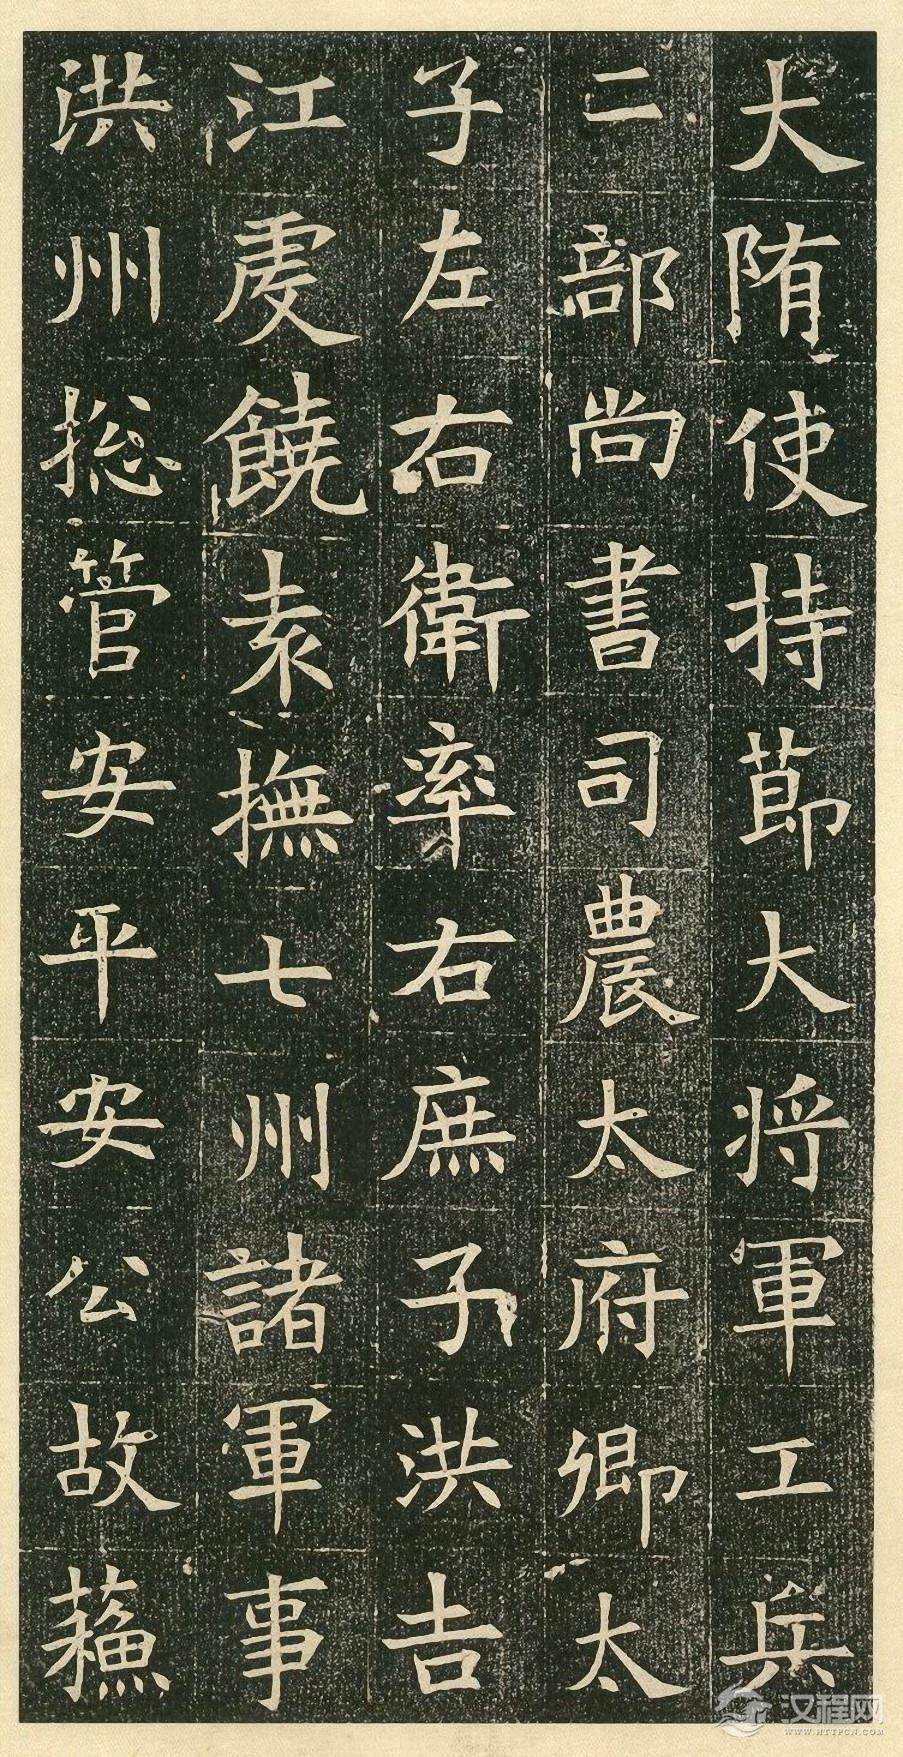 大隋使持節大將軍工兵
二部尚書司農太府卿太
子左右衛率右庶子洪吉
江虔饒袁撫七州諸軍事
洪州総管安平安公故蘓
汉程网
WWW.HTTPCN.COM